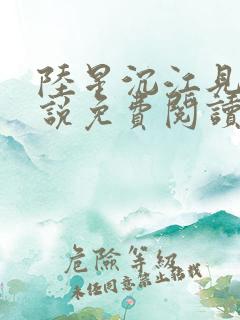 陸星沉江見
說免費閱讀
危險等級
未经同意禁止搭载